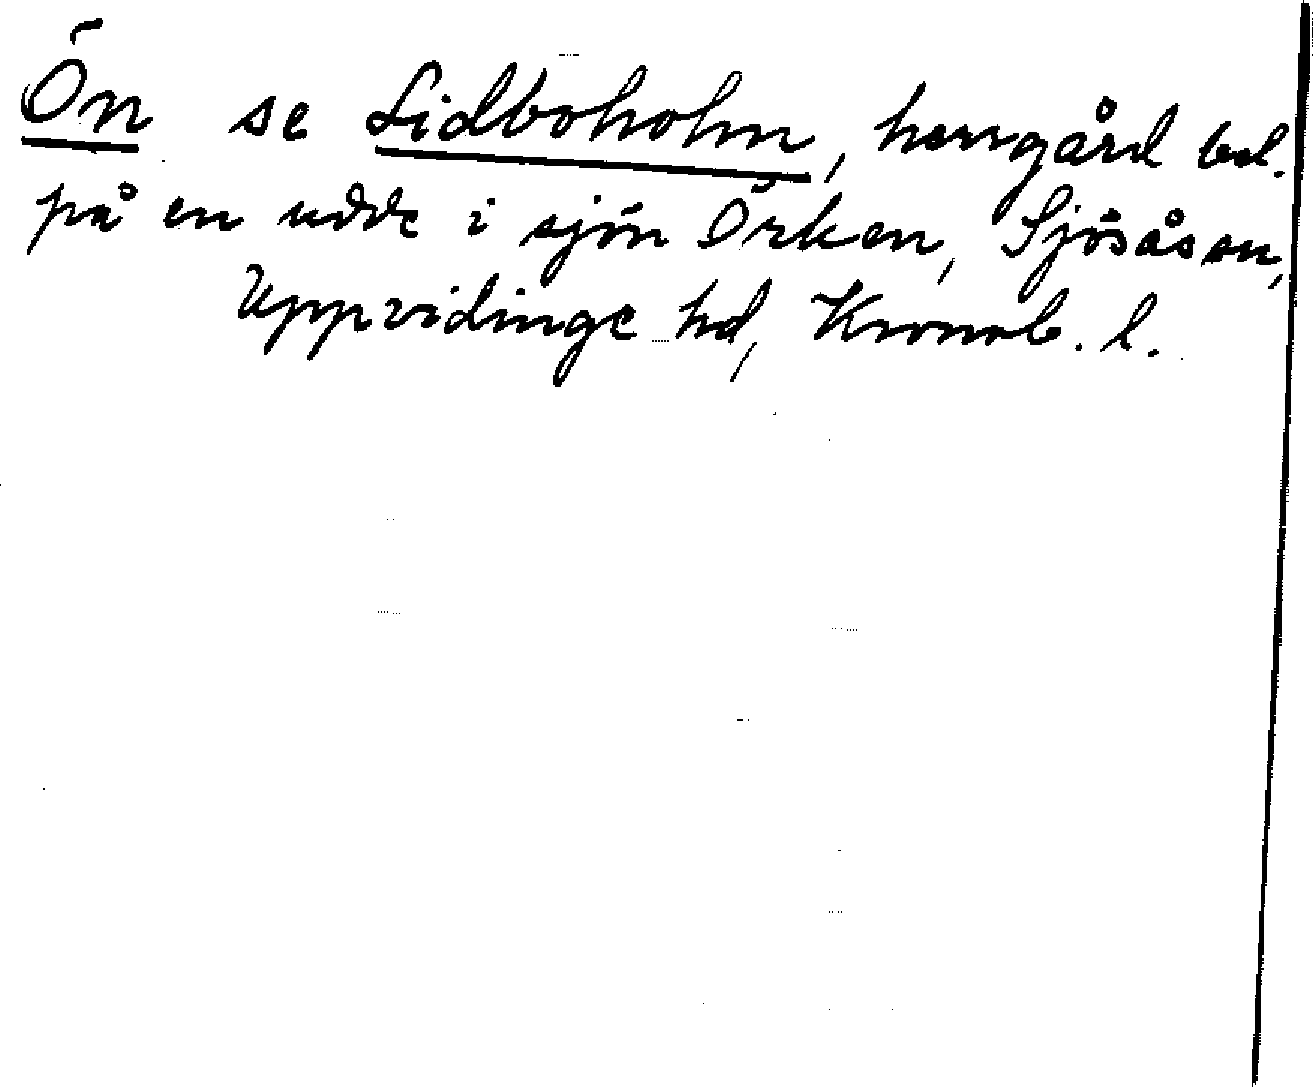 Ön se Lidboholm, herrgård bel.
på en udde i sjön Örken, Sjösås sn,
Uppvidinge hd, Kronob. l.